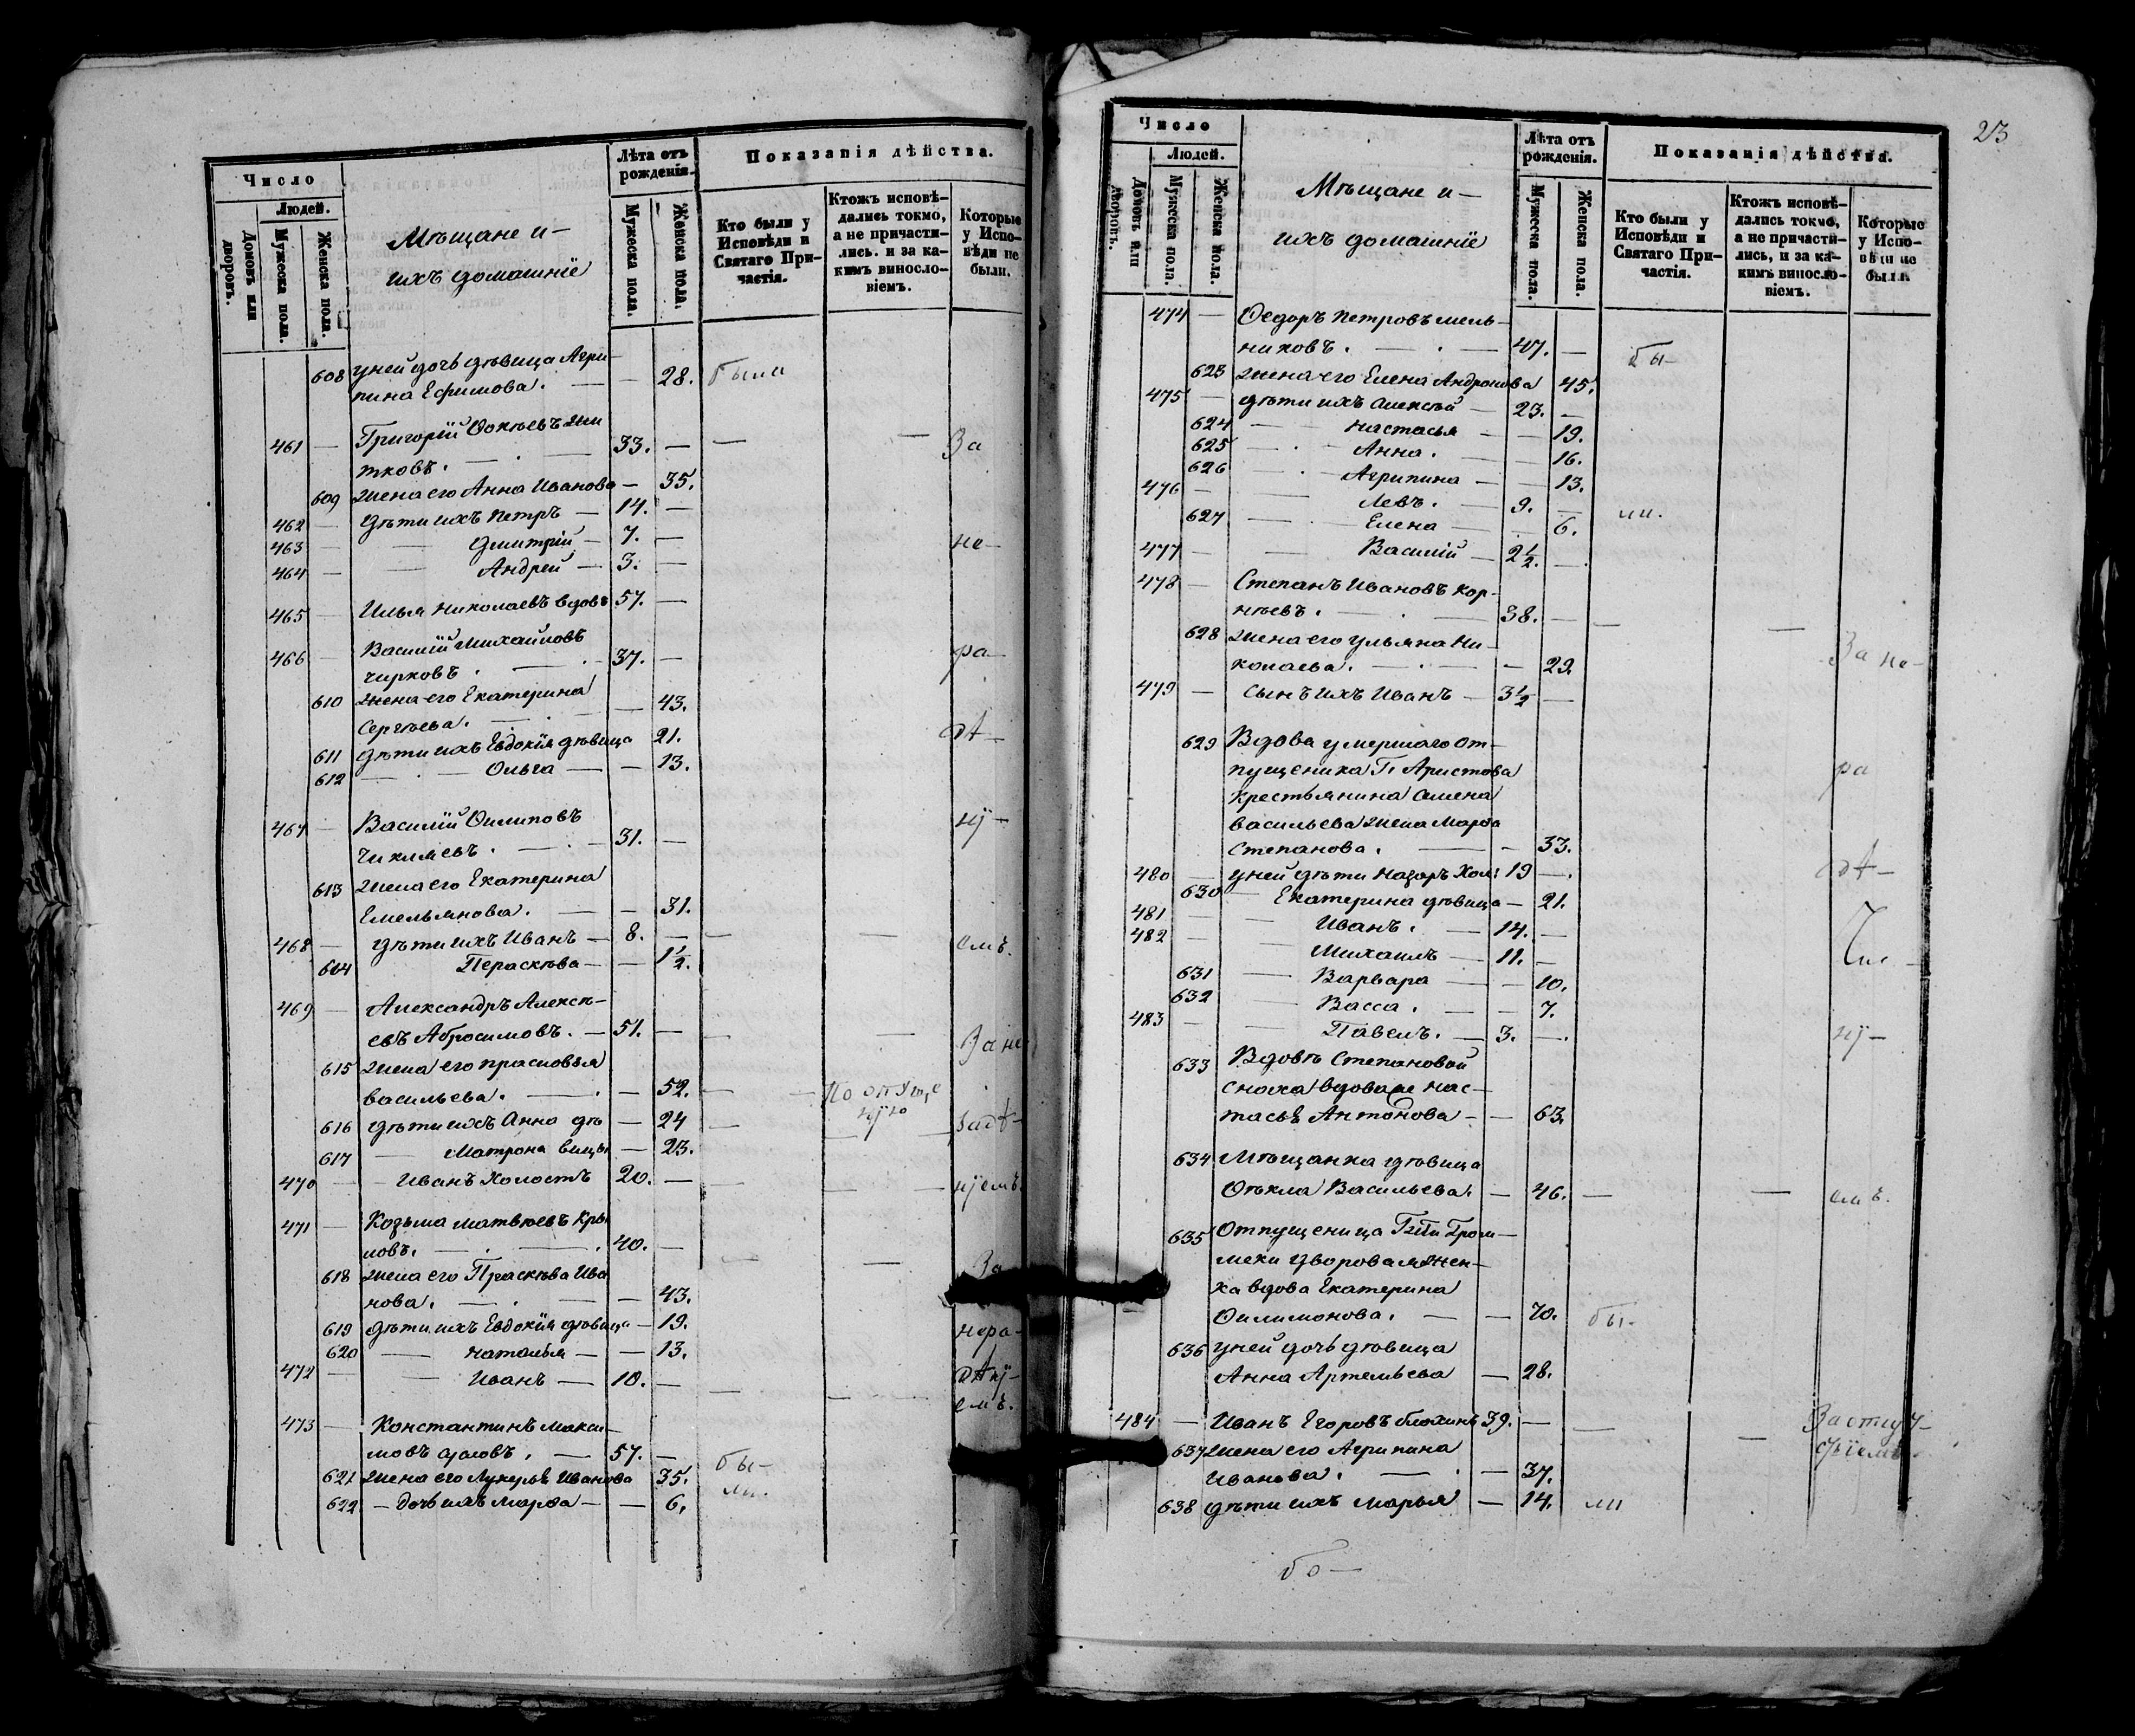 Число
Людей.
Домовъ или дворовъ.
Мужеска пола.
Женска пола.
Мѣщане и-
ихъ домашнiе
Лѣта отъ рожденiя.
Мужеска пола.
Женска пола.
Показанiя дѣйства.
Кто были у Исповѣди и Святаго Причастiя.
Ктожъ исповѣ-
дались токмо,
а не причасти-
лись. и за ка-
кимъ винослo-
вiемъ.
Которые
у Испо-
вѣди не
были.
608 уней дочь дѣвица Агри-
пина Ефимова. — — 28. были
461 — Григорiй
тковъ. — 33. — — — За
609 жена его Анна Иванова — 35.
462 — дѣти ихъ Петръ — 14. —
463 — Дмитрiй — 7. — не-
464 — Андрей — 3. —
465 — Илья Николаевъ вдовъ 57. —
466 — Василiй Михайловъ
чирковъ. — 37. — ра-
610 жена его Екатерина
Сергѣева. — 43.
611 дѣти ихъ Евдокiя дѣвица 21.
612 — Ольга — — 13.
467 — Василiй Филиповъ
31. —
613 жена его Екатерина
Емельянова. — — 31.
468 — дѣти ихъ Иванъ — 8. — — — емъ.
614 Параскѣва — — 1½.
469 — Александръ Алексѣ-
евъ Абросимовъ. — 51. — — — За не
615 жена его прасковья
васильева. — — 52. —
616 дѣти ихъ Анна дѣ — 24
617 — Матрона вицы — 23.
470 — Иванъ Холостъ 20. —
471 — Козьма матвѣевъ Кры
ловъ. — 40. —
618 жена его Праскѣва Ива За
нова. — — 43.
619 дѣти ихъ Евдокiя дѣвица — 19. нера-
620 — наталья — — 13.
472 — Иванъ — 10. —
емъ.
473 — Константинъ Макси-
мовъ — 57. — бы-
621 жена его Лукерья Иванова 35. ли.
622 — дочь ихъ марѳа — — 6.
23
Число
Людей.
Домовъ или дворовъ.
Мужеска пола.
Женска пола.
Мѣщане и-
ихъ домашнiе
Лѣта отъ рожденiя.
Мужеска пола.
Женска пола.
Показанiя дѣйства.
Кто были у Исповѣди и Святаго Причастiя.
Ктожъ исповѣ-
дались токмо,
а не причасти-
лись, и за ка-
кимъ винослo-
вiемъ.
Которые
у Испо-
вѣди не
были.
474 — Ѳедоръ Петровъ мель-
никовъ. — 47. — бы-
623 жена его Елена Андронова 45.
475 — дѣти ихъ Алексѣй — 23. —
624 — настасья — — 19.
625 — Анна. — — 16.
626 — Агрипина — — 13.
476 — Левъ. — 9. — ли.
627 — Елена — 6.
477 — Василiй — 2½. —
478 — Степанъ Ивановъ кор-
нѣевъ. — 38. — — —
628 жена его ульяна Ни- За не-
колаева. — — 29.
479 — сынъ ихъ Иванъ — 3½ —
629 Вдова умершаго от-
пущеника Г. Аристова ра
крестьянина Семена
васильева жена Марѳа
Степанова. — — 33.
480 — уней дѣти Назаръ Хол: 19 —.
630 — Екатерина дѣвица — 21.
481 — Иванъ. — 14. —
482 — Михаилъ — 11. —
631 — Варвара — — 10.
632 — Васса. — — 7.
483 — Павелъ. — 3. —.
633 Вдовы Степановой
сноха вдова же нас-
тасья Антонова — — 63.
634 Мѣщанка дѣвица
Ѳѣкла Васильева. — 46. — — емъ.
635 Отпущеница
дворовая жен-
ка вдова Екатерина
Филимонова. — — 70. бы.
636 уней дочь дѣвица
Анна Артемьева — 28.
484 — Иванъ Егоровъ блохинъ 39. — — — За отлу
637 жена его Агрипина
Иванова. — — 37.
638 дѣти ихъ Марья — 14. ли